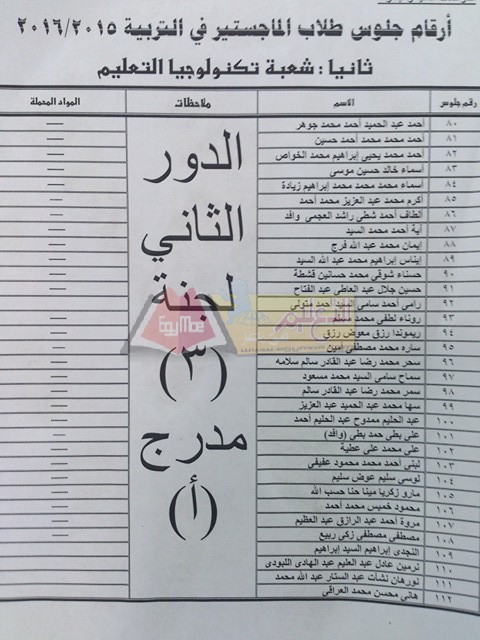 أرقام جلوس طلاب الماجستير في التربية ٢٠١٦/٢٠١٥
ثانيا : شعبة تكنولوجيا التعليم
رقم جلوس الاسم ملاحظات المواد المحملة
٨٠ أحمد عبد الحميد أحمد محمد جوهر
٨١ أحمد محمد محمد أحمد حسين
٨٢ أحمد محمد يحيى إبراهيم محمد الخواص
٨٣ أسماء خالد حسين موسى
٨٤ أسماء محمد محمد محمد إبراهيم زيادة
٨٥ أكرم محمد عبد العزيز محمد أحمد
٨٦ الطاف أحمد شطي راشد العجمي وافد
٨٧ آية أحمد محمد السيد
٨٨ إيمان محمد عبد الله فرج
٨٩ إيناس إبراهيم محمد عبد الله السيد
٩٠ حسناء شوقي محمد حسانين قشطة
٩١ حسين جلال عبد العاطي عبد الفتاح
٩٢ رامي أحمد سامي السيد أحمد متولي
٩٣ روناء لطفي محمد مسلم
٩٤ ريموندا رزق معوض رزق
٩٥ ساره محمد مصطفى أمين
٩٦ سحر محمد رضا عبد القادر سالم سلامه
٩٧ سماح سامي السيد محمد مسعود
٩٨ سمر محمد رضا عبد القادر سالم
٩٩ سها محمد عبد الحميد عبد العزيز
١٠٠ عبد الحليم ممدوح عبد الحليم أحمد
١٠١ على بطي حمد بطي (وافد)
١٠٢ على محمد على عطية
١٠٣ لبنى أحمد محمد محمود عفيفي
١٠٤ لوسى سليم عوض سليم
١٠٥ مارو زكريا مينا حنا حسب الله
١٠٦ محمود خميس محمد أحمد
١٠٧ مروة أحمد عبد الرازق عبد العظيم
١٠٨ مصطفى مصطفى زكى ربيع
١٠٩ النجدى إبراهيم السيد إبراهيم
١١٠ نرمين عادل عبد العليم عبد الهادى اللبودى
١١١ نورهان نشأت عبد الستار عبد الله محمد
١١٢ هاني محسن محمد العراقي
الدور
الثاني
لجنة
(٣)
مدرج
(أ)
EgyMoe